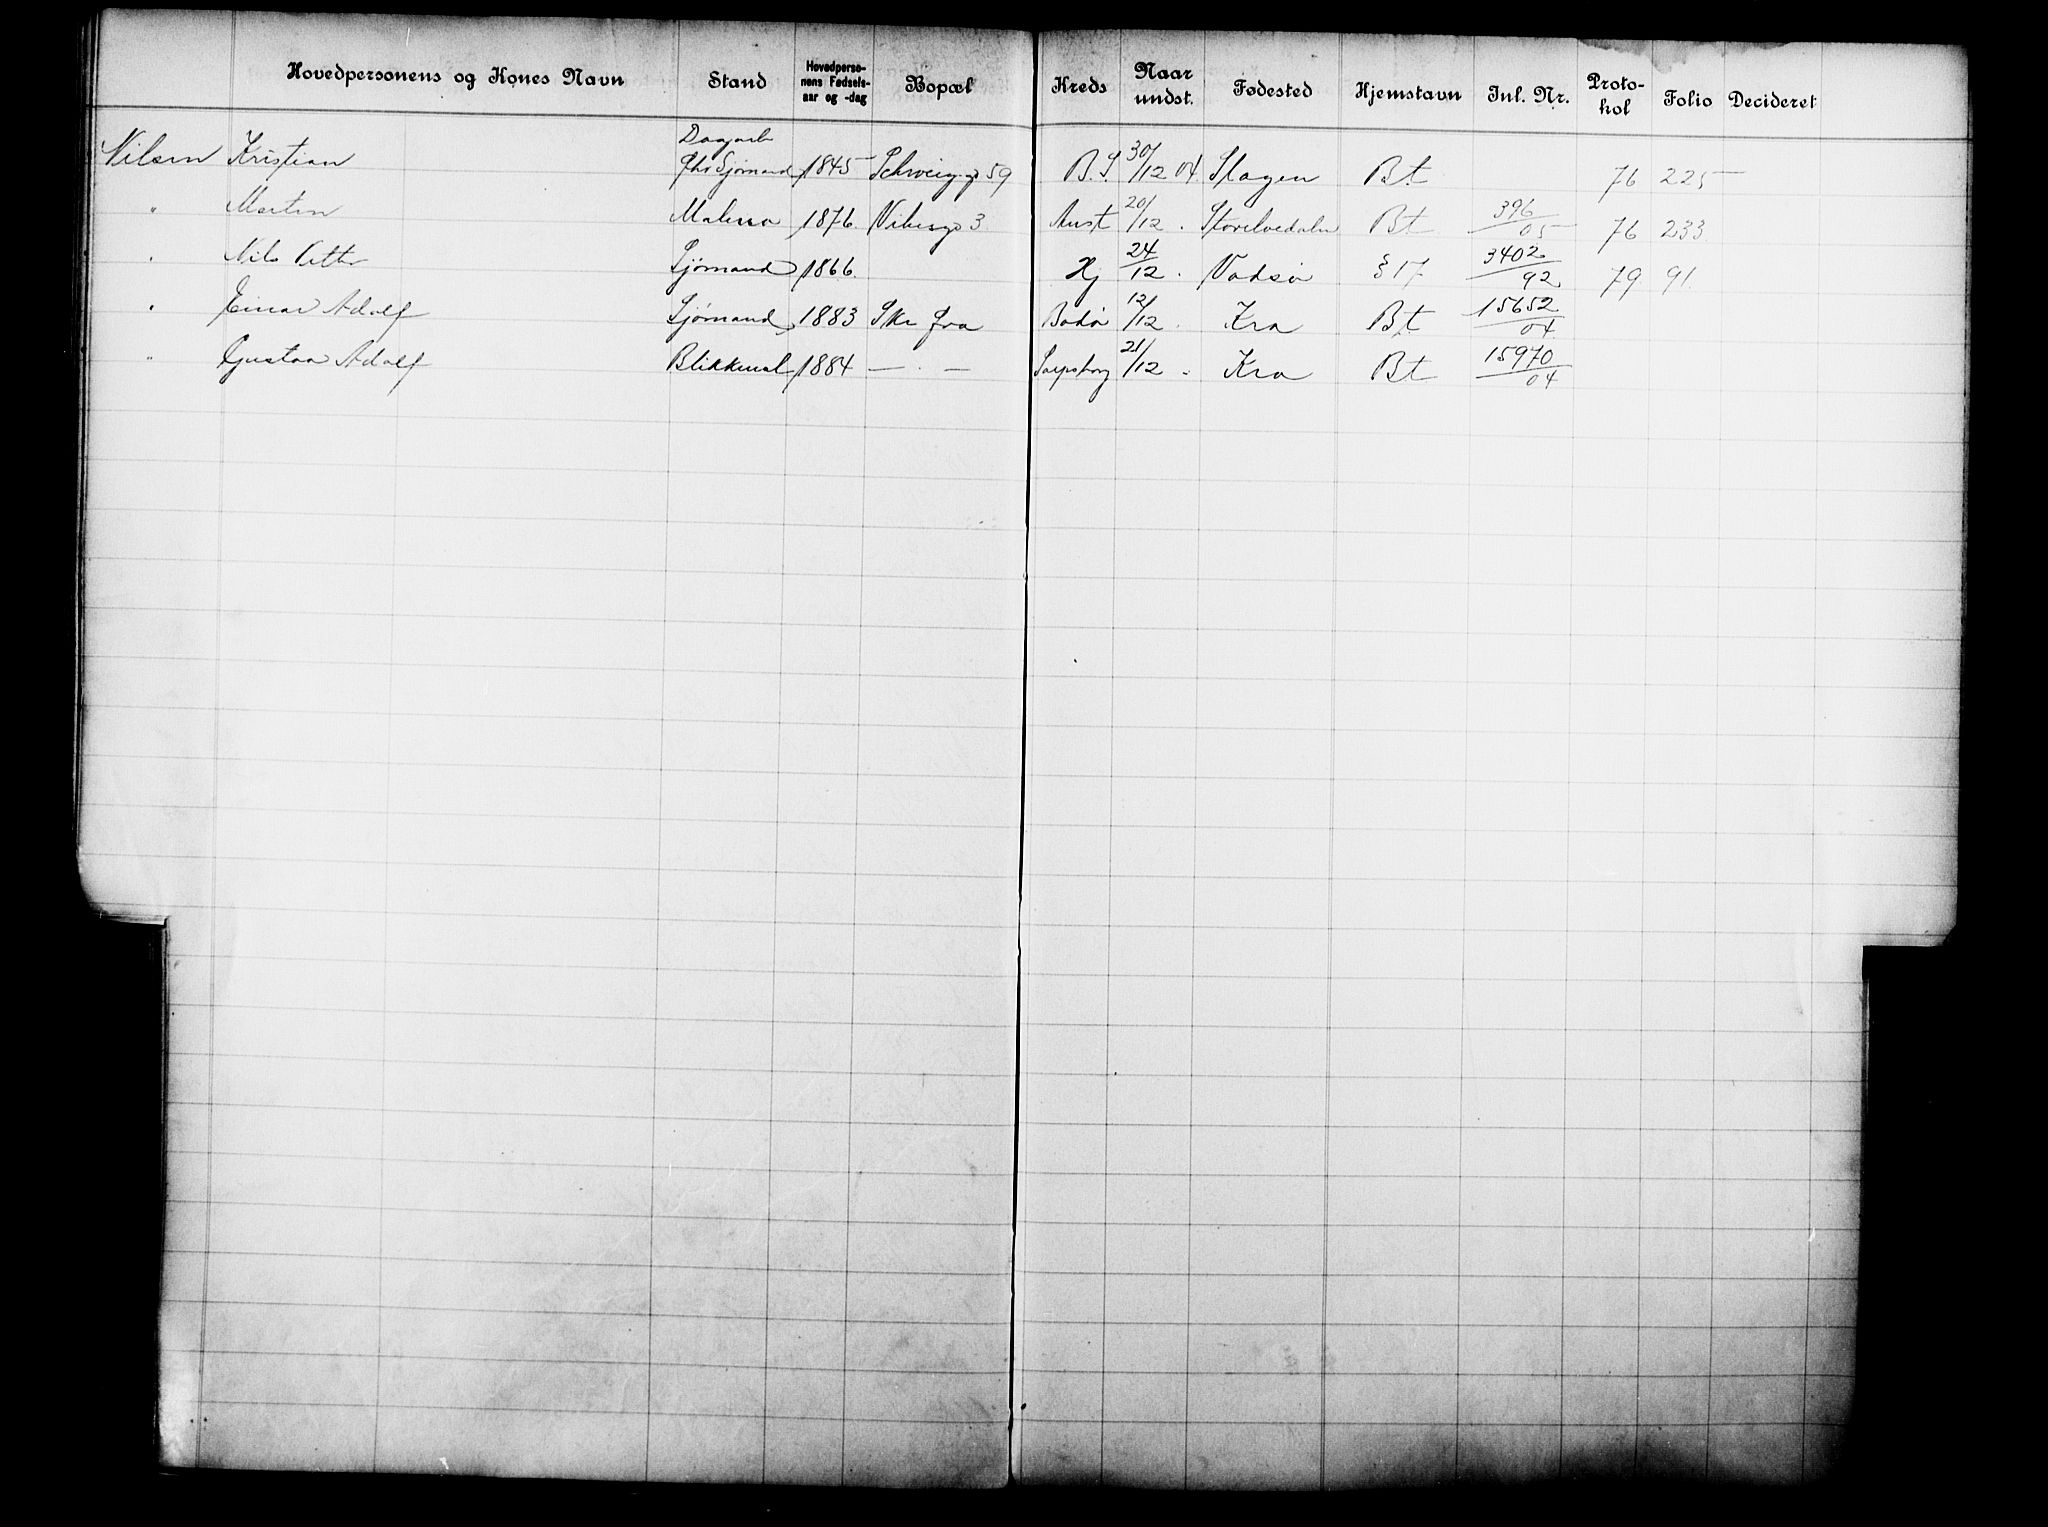 Hovedpersonens og Kones Navn Stand Hovedperso-nens Fødsels-aar og -dag Bopæl Kreds Naar undst. Fødested Hjemstavn Inl. Nr. Proto-kol Folio Decideret
Dagarb
Nilsen Kristian Sjømand 1845 Schweigg 59 B.S. 30/12 04 Slagen Bt 76 225
" Martin 1876 Vibesg 3 Aust 20/12 . Storelvedalen Bt 396/05 76 233
" Nils Petter Sjømand 1866 Hj 24/12 . Vadsø § 17 3402/92 79 91
" Einar Adolf Sjømand 1883 Skr fra Bodø 12/12 . Kra Bt 15652/04
" Gustav Adolf Blikkensl 1884 — . — Sarpsborg 21/12 . Kra Bt 15970/04